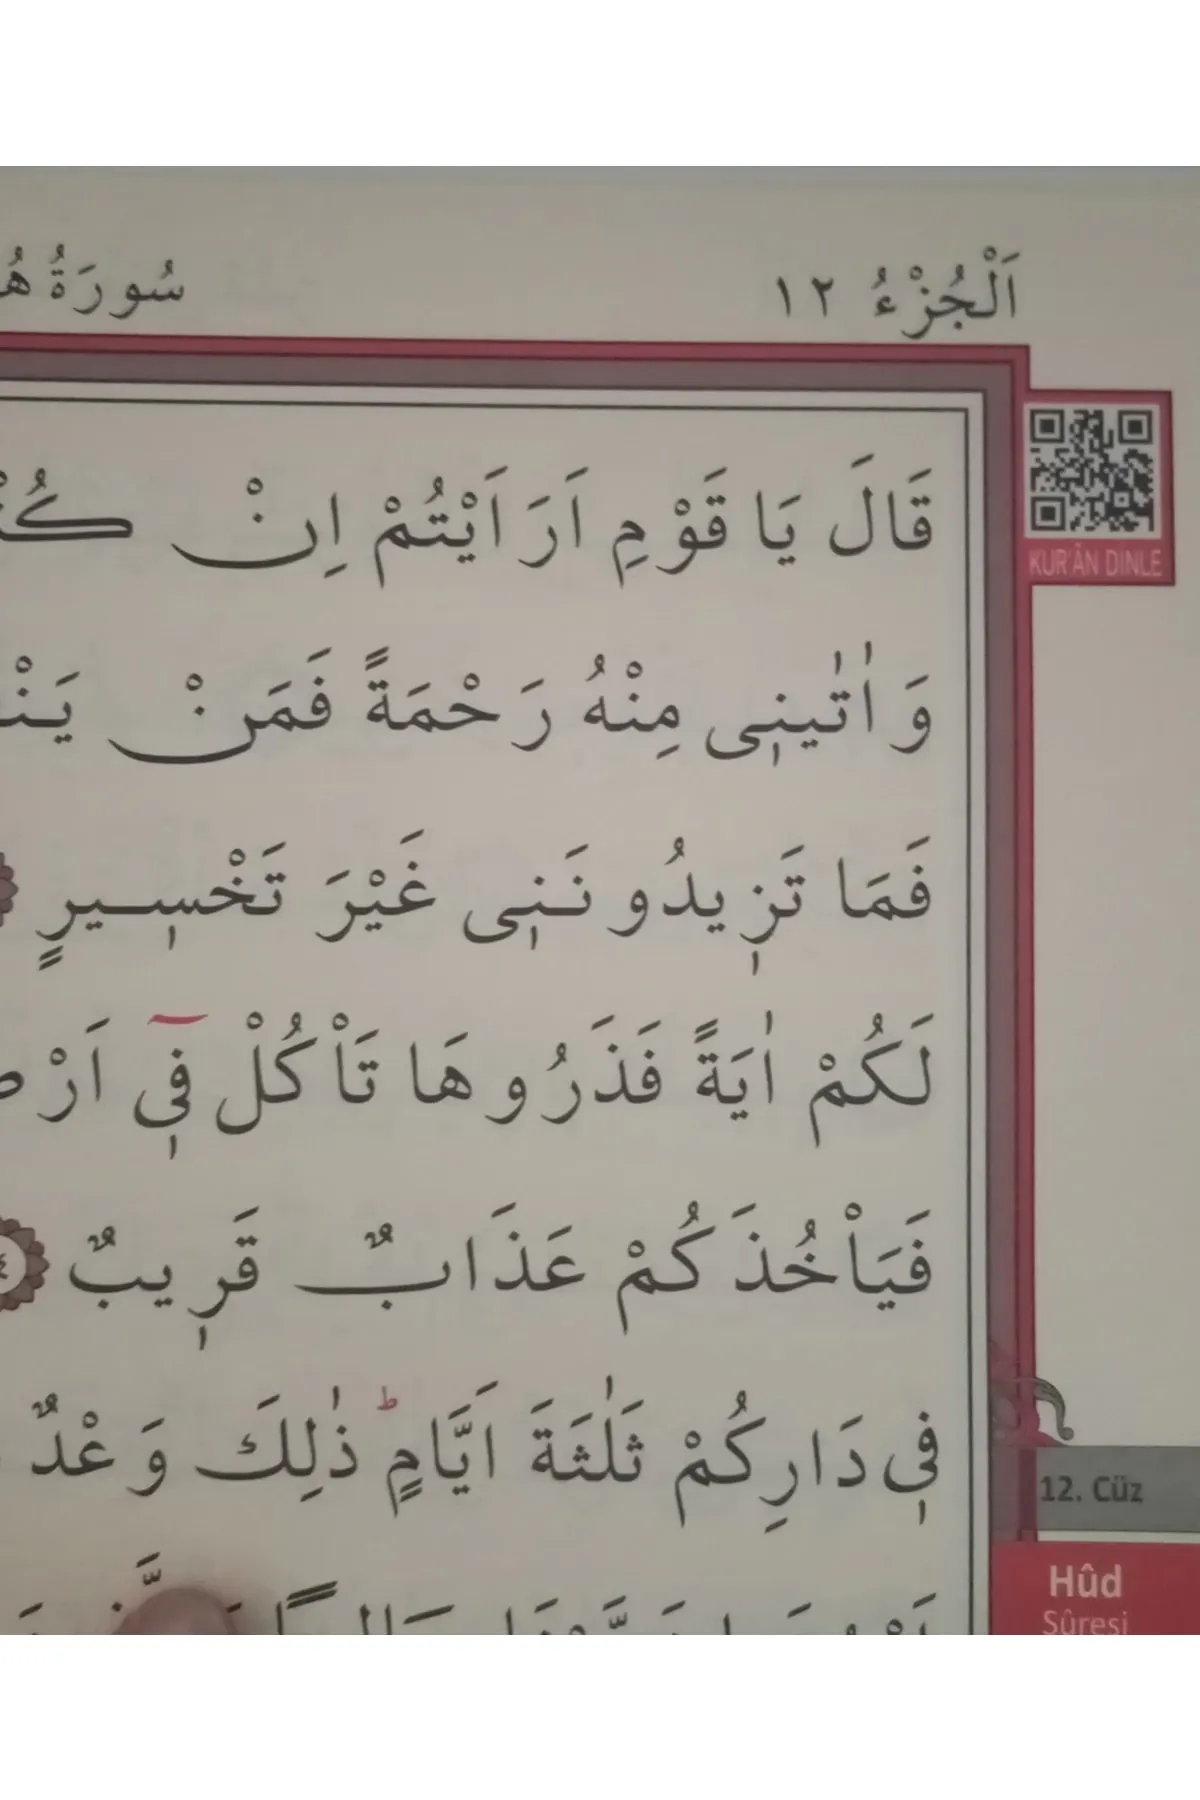 اَلْجُزْءُ ١٢
سُورَةُ
قَالَ يَا قَوْمِ اَرَاَيْتُمْ اِنْ
KUR'ÂN DİNLE
وَاٰتٰينٖى مِنْهُ رَحْمَةً فَمَنْ
فَمَا تَزٖيدُونَنٖى غَيْرَ تَخْسٖيرٍ
لَكُمْ اٰيَةً فَذَرُوهَا تَأْكُلْ فٖٓى
فَيَأْخُذَكُمْ عَذَابٌ قَرٖيبٌ
فٖى دَارِكُمْ ثَلٰثَةَ اَيَّامٍؕ ذٰلِكَ وَعْدٌ
12. Cüz
Hûd
Sûresi